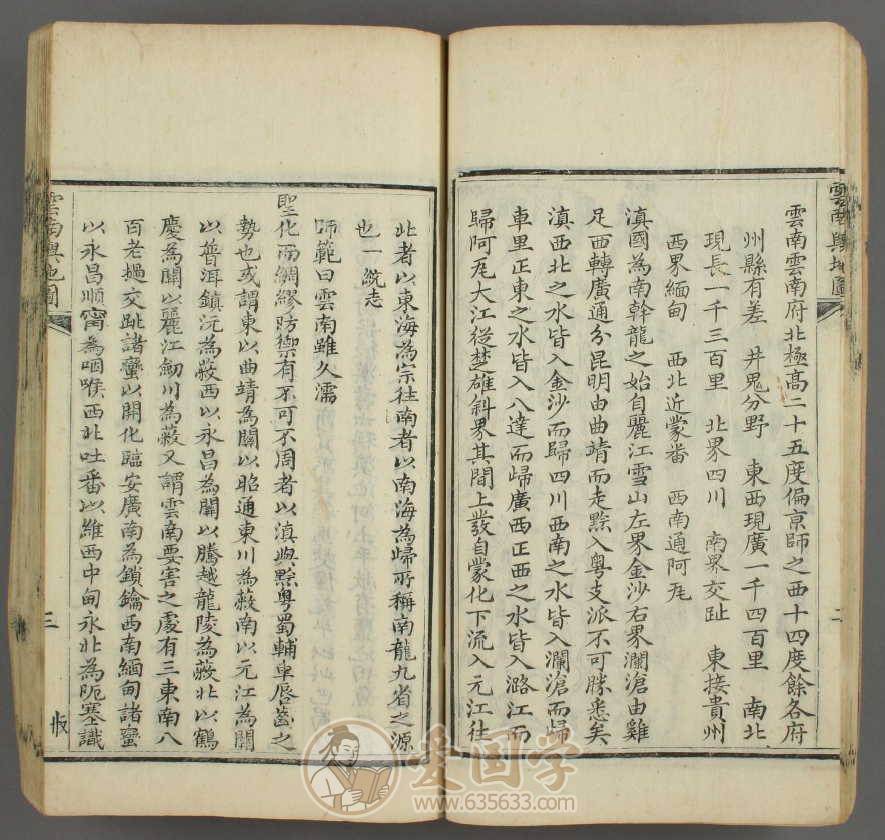 雲南輿地圖
雲南雲南府北極高二十五度偏京師之西十四度餘各府
州縣有差　井鬼分野　東西現廣一千四百里　南北
現長一千三百里　北界四川　南界交趾　東接貴州
西界緬甸　西北近蒙番　西南通阿瓦
滇國為南幹龍之始自麗江雪山左界金沙右界瀾滄由雞
足西轉廣通分昆明由曲靖而走黔入粵支派不可勝悉矣
滇西北之水皆入金沙而歸四川西南之水皆入瀾滄而歸
車里正東之水皆入八達而歸廣西正西之水皆入潞江而
歸阿瓦大江從楚雄斜界其間上發自蒙化下流入元江往
二
北者以東海為宗往南者以南海為歸所稱南龍九省之源
也一統志
師範曰雲南雖久濡
聖化而綢繆防禦有不可不周者以滇與黔粵蜀輔車唇齒之
勢也或謂東以曲靖為關以昭通東川為蔽南以元江為關
以普洱鎮沅為蔽西以永昌為關以騰越龍陵為蔽北以鶴
慶為關以麗江劍川為蔽又謂雲南要害之處有三東南八
百老撾交趾諸蠻以開化臨安廣南為鎖鑰西南緬甸諸蠻
以永昌順甯為咽喉西北吐番以維西中甸永北為阨塞識
雲南輿地圖
三
爱国学
www.635633.com